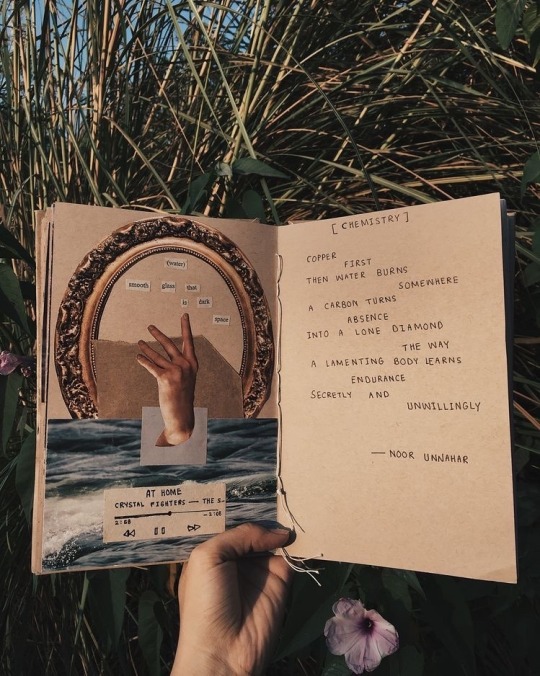 (water)
smooth glass that
is dark
space
AT HOME
CRYSTAL FIGHTERS — THE S..
2:58 -2:00
[CHEMISTRY]
COPPER FIRST
THEN WATER BURNS
SOMEWHERE
A CARBON TURNS
ABSENCE
INTO A LONE DIAMOND
THE WAY
A LAMENTING BODY LEARNS
ENDURANCE
SECRETLY AND
UNWILLINGLY
— NOOR UNNAHAR